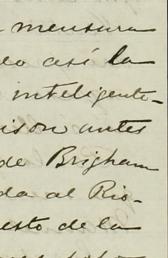 mensura
así la
inteligente-
ison antes
de Brigham
da al Rio-
esto de la